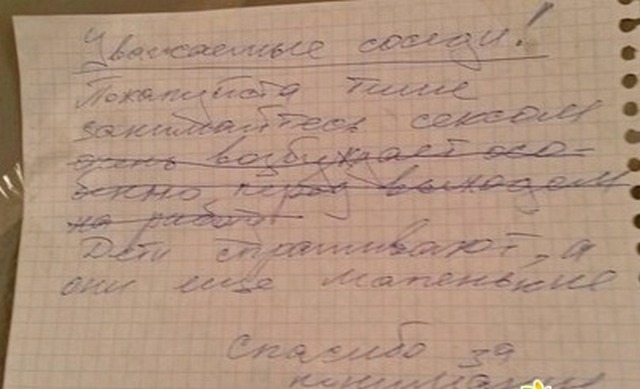 Уважаемые соседи!
Пожалуйста тише
занимайтесь сексом
очень возбуждает осо-
бенно перед выходом
на работу
Дети спрашивают, а
они еще маленькие
Спасибо за
понимание